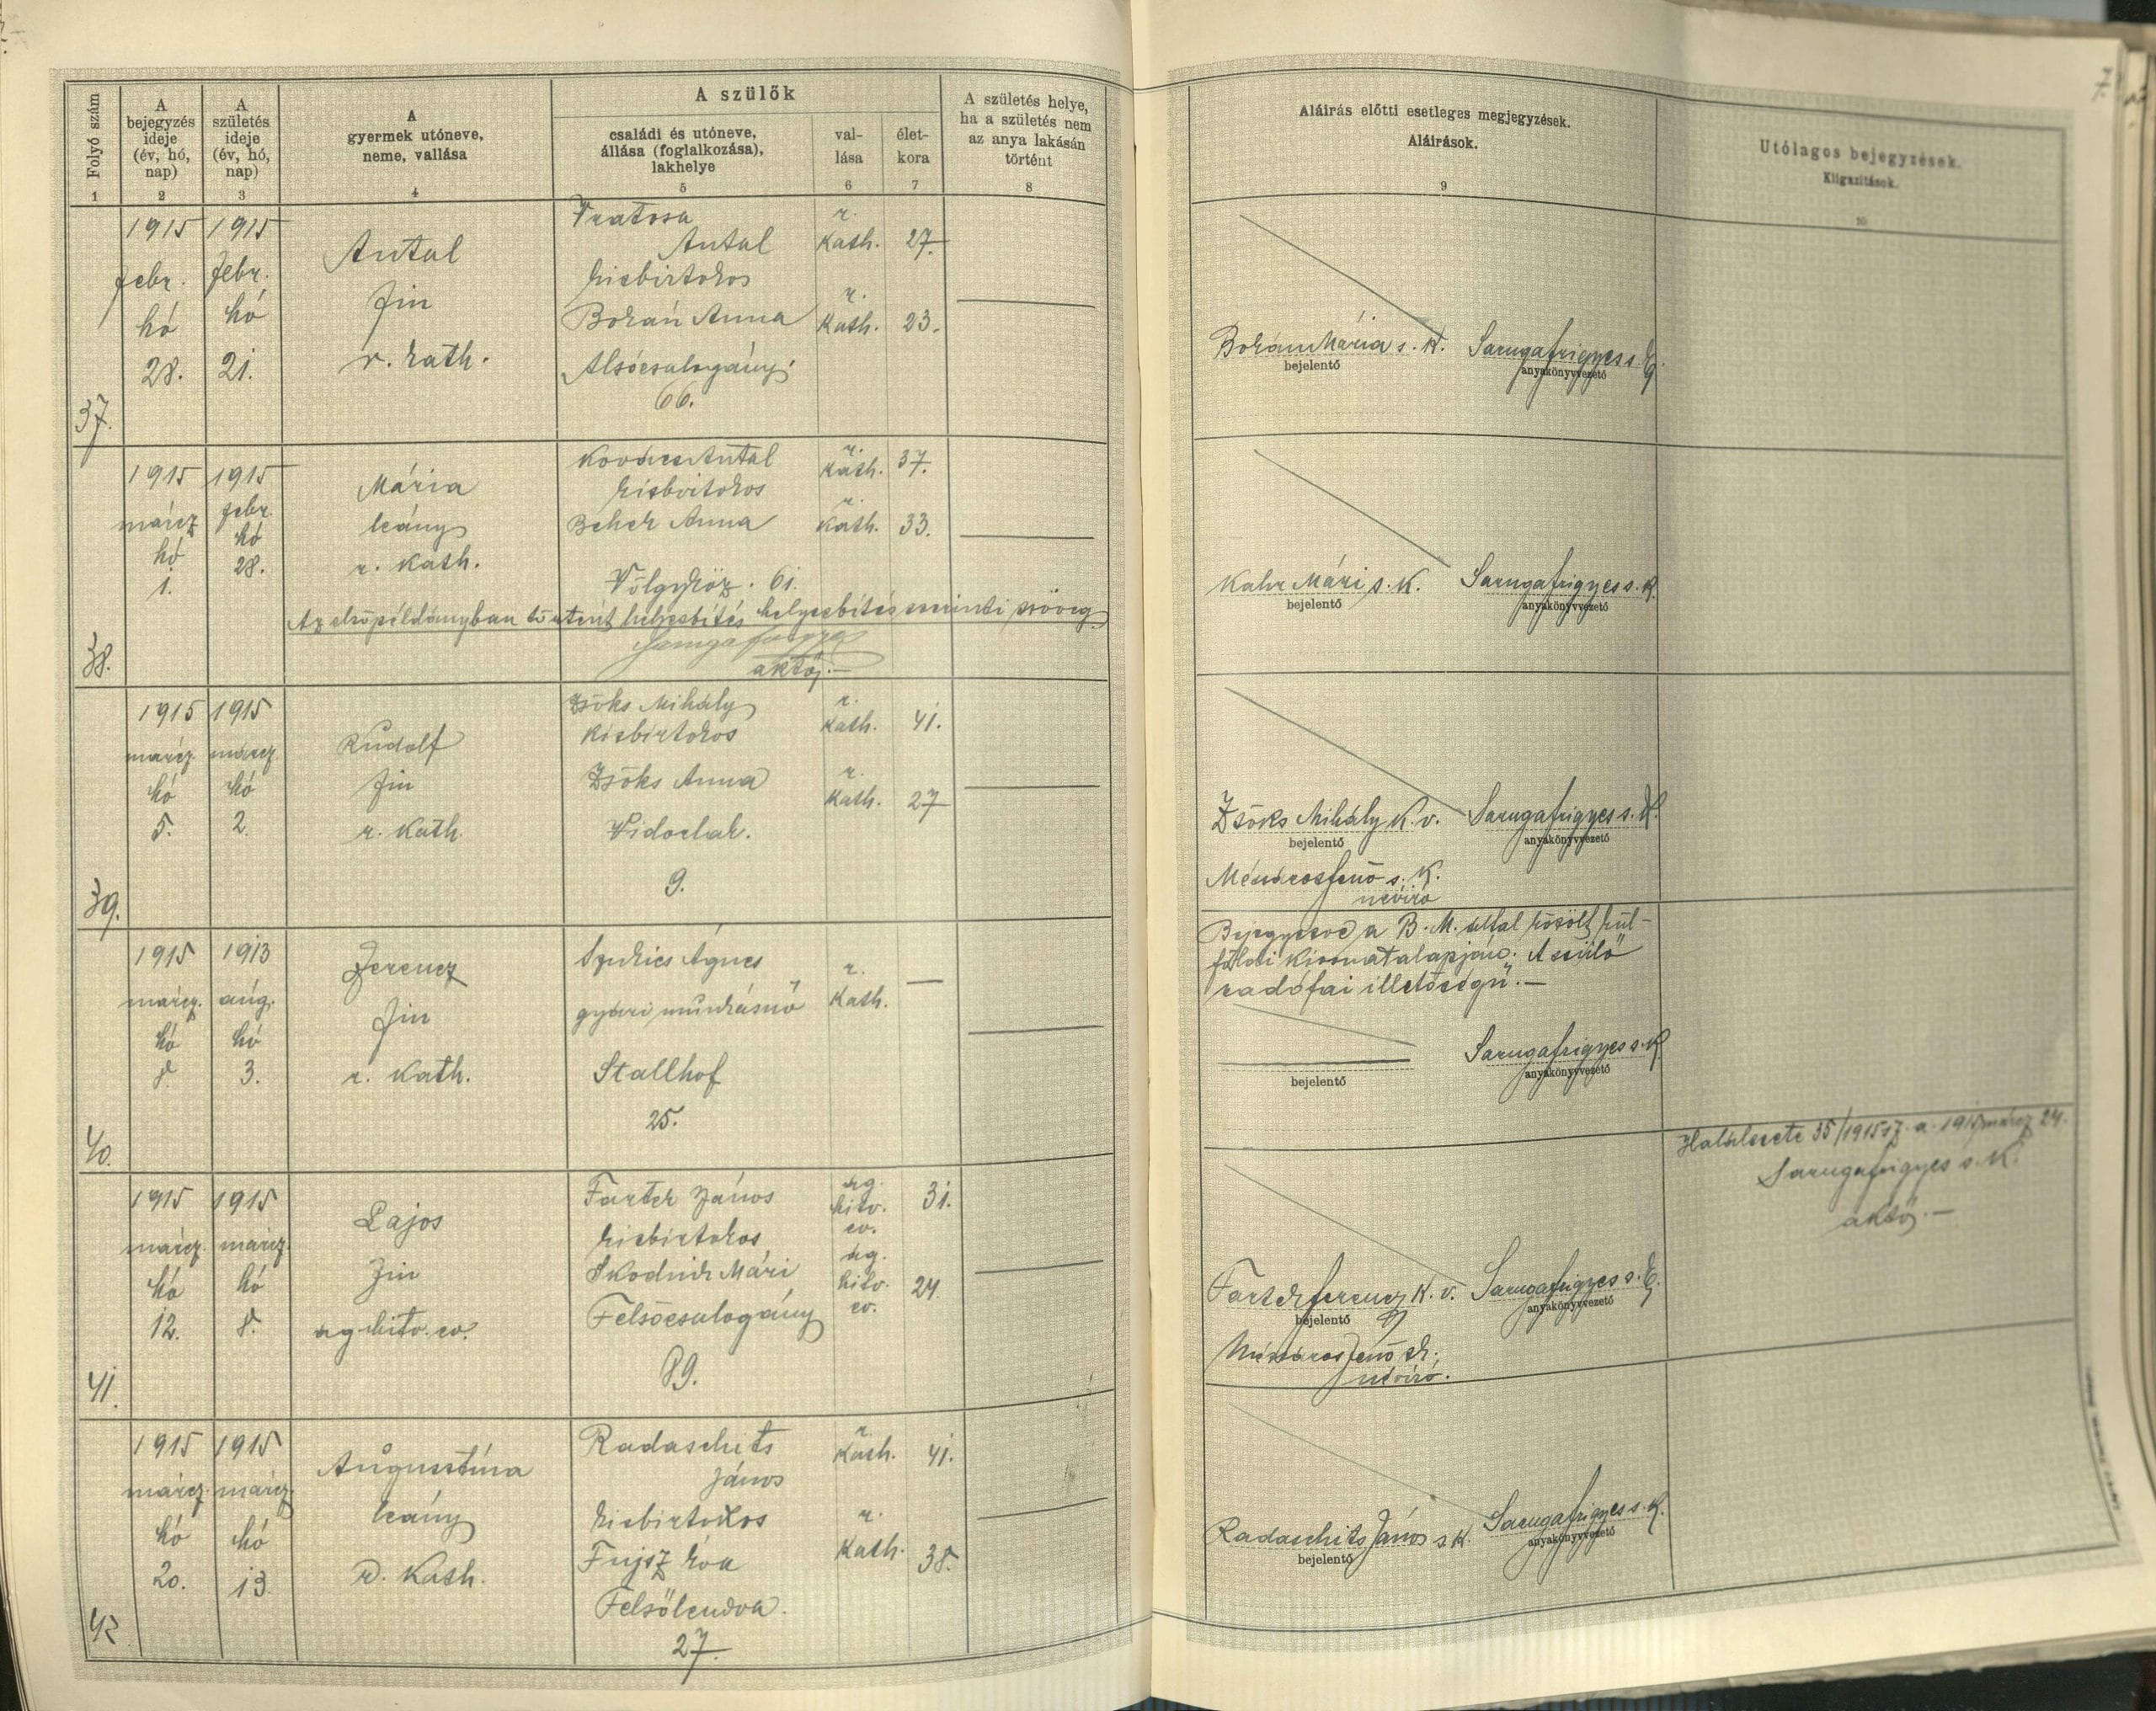 Folyó szám
A bejegyzés ideje (év, hó, nap)
A születés ideje (év, hó, nap)
A gyermek utóneve, neme, vallása
A szülők
családi és utóneve, állása (foglalkozása), lakhelye
val-
lása
élet-
kora
A születés helye, ha a születés nem az anya lakásán történt
Aláirás előtti esetleges megjegyzések.
Aláirások.
Utólagos bejegyzések.
Kiigazitások.
1 2 3 4 5 6 7 8 9 10
37.
1915 febr. hó 28.
1915 febr. hó 21.
Antal
fiu
r. kath.
Vratosa
Antal
kisbirtokos
Bokán Anna
Alsócsalogány
66.
r. kath. 27.
r. kath. 23.
Bokán Mária s. k.
bejelentő
Saruga frigyes s. k.
anyakönyvvezető
38.
1915 márcz hó 1.
1915 febr. hó 28.
Mária
leány
r. kath.
Kovács Antal
kisbirtokos
Anna
Völgyköz. 61.
r. kath. 37.
r. kath. 33.
Az elsőpéldányban történt helyesbítés helyesbítés szerinti szöveg
Saruga frigyes
aktőj.
Mári s. k.
bejelentő
Saruga frigyes s. k.
anyakönyvvezető
39.
1915 márcz. hó 5.
1915 márcz hó 2.
Rudolf
fiu
r. kath.
Zsöks Mihály
kisbirtokos
Zsöks Anna
Vidorlak.
9.
r. kath. 41.
r. kath. 27
Zsöks Mihály k. v.
bejelentő
Saruga frigyes s. k.
anyakönyvvezető
Mészáros Jenő s. k.
névíró
40.
1915 márcz. hó 8.
1913 aug. hó 3.
Ferencz
fiu
r. kath.
Szukics Ágnes
gyári munkásnő
Stallhof
25.
r. kath.
Bejegyezve a B. M. által közölt kül-
földi kivonat alapján. A szülő
radófai illetőségű.
bejelentő
Saruga frigyes s. k.
anyakönyvvezető
41.
1915 márcz. hó 12.
1915 márcz. hó 8.
Lajos
fiu
ág. hitv. ev.
Farteh János
kisbirtokos
Skodnik Mári
Felsőcsalogány
89.
ág. hitv. ev. 31.
ág. hitv. ev. 24.
ferencz k. v.
bejelentő
Saruga frigyes s. k.
anyakönyvvezető
Mészáros Jenő sk.
névíró.
Halálesete 35/1915 sz. a. 1915 márcz 24.
Saruga frigyes s. k.
aktőj.
42
1915 márcz. hó 20.
1915 márcz. hó 13
Augusztina
leány
r. kath.
Radaschits
János
kisbirtokos
Fujsz Éva
Felsőlendva.
27.
r. kath. 41.
r. kath. 38.
Radaschits János s k.
bejelentő
Saruga frigyes s. k.
anyakönyvvezető